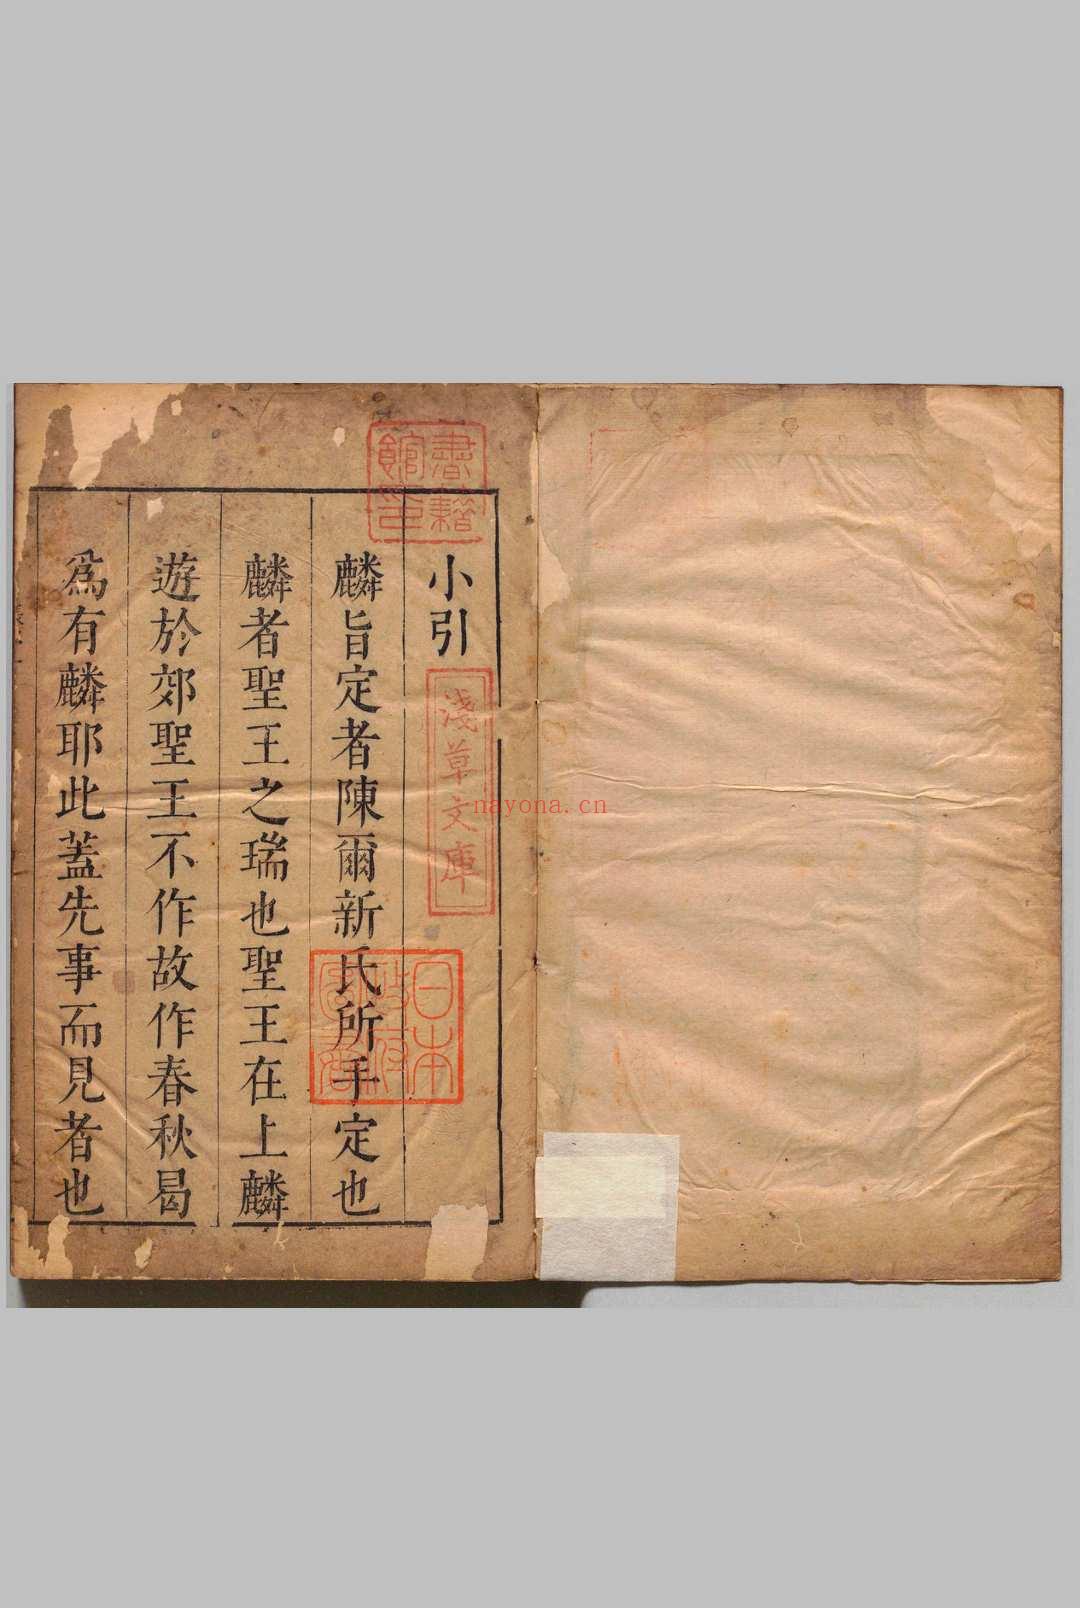 小引
麟旨定者陳爾新氏所手定也
麟者聖王之瑞也聖王在上麟
遊於郊聖王不作故作春秋曷
爲有麟耶此蓋先事而見者也
書籍館印
淺草文庫
日本政府圖書
nayona.cn